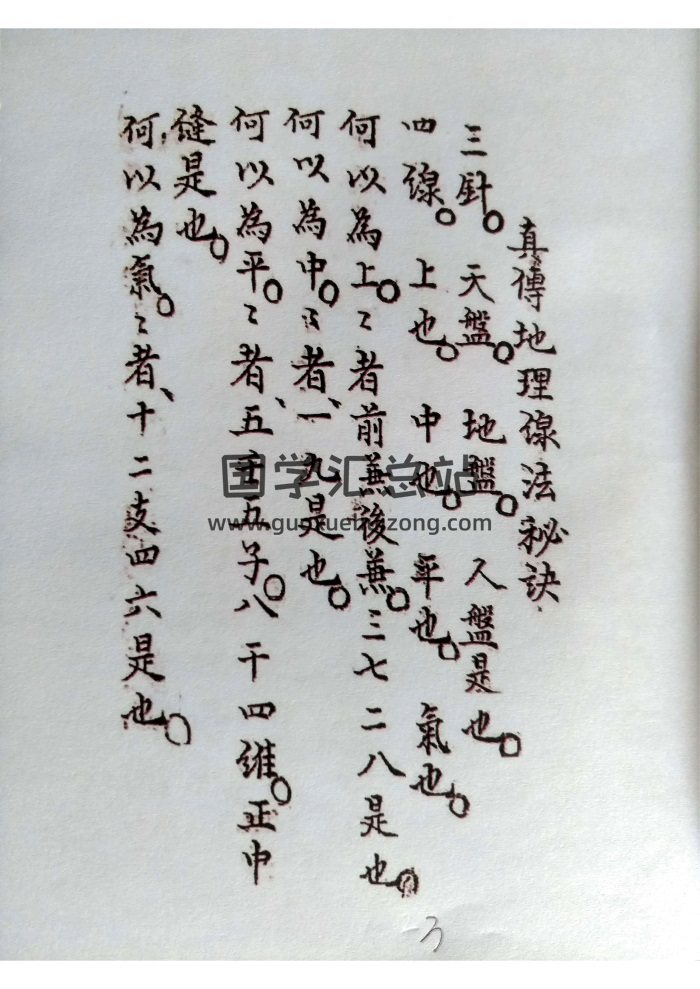 真傳地理線法秘訣
三針。天盤。地盤。人盤是也。
四線。上也。中也。平也。氣也。
何以為上。〻者前兼後兼。三七二八是也。
何以為中。〻者、一九是也。
何以為平。〻者、五壬五子。八干四維。正中
縫是也。
何以為氣。〻者、十二支四六是也。
国学汇总站
www.guoxuehuizong.com